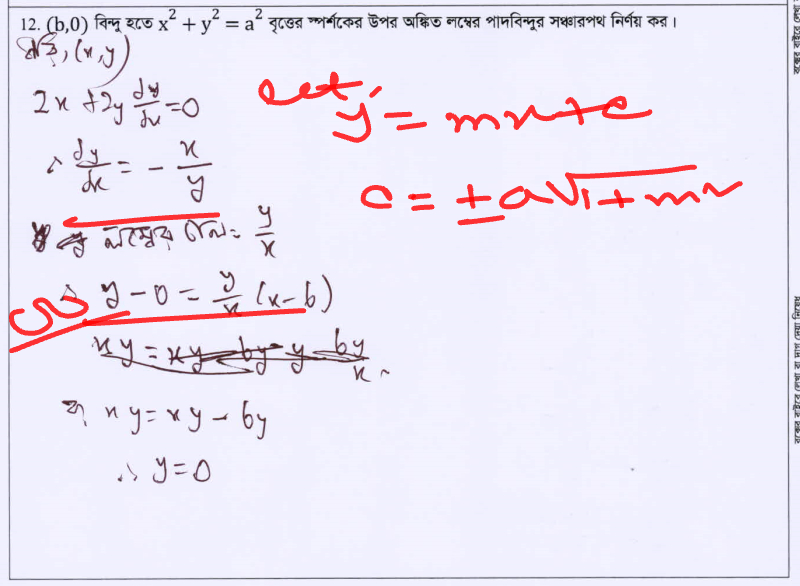 12. (b,0) বিন্দু হতে x² + y² = a² বৃত্তের স্পর্শকের উপর অঙ্কিত লম্বের পাদবিন্দুর সঞ্চারপথ নির্ণয় কর।
ধরি, (x,y)
2x + 2y dy/dx = 0
∴ dy/dx = - x/y
লম্বের ঢাল = y/x
∴ y - 0 = y/x (x - b)
xy = xy - by y by/x
বা, xy = xy - by
∴ y = 0
let,
y = mx + c
c = ± a√1 + m²